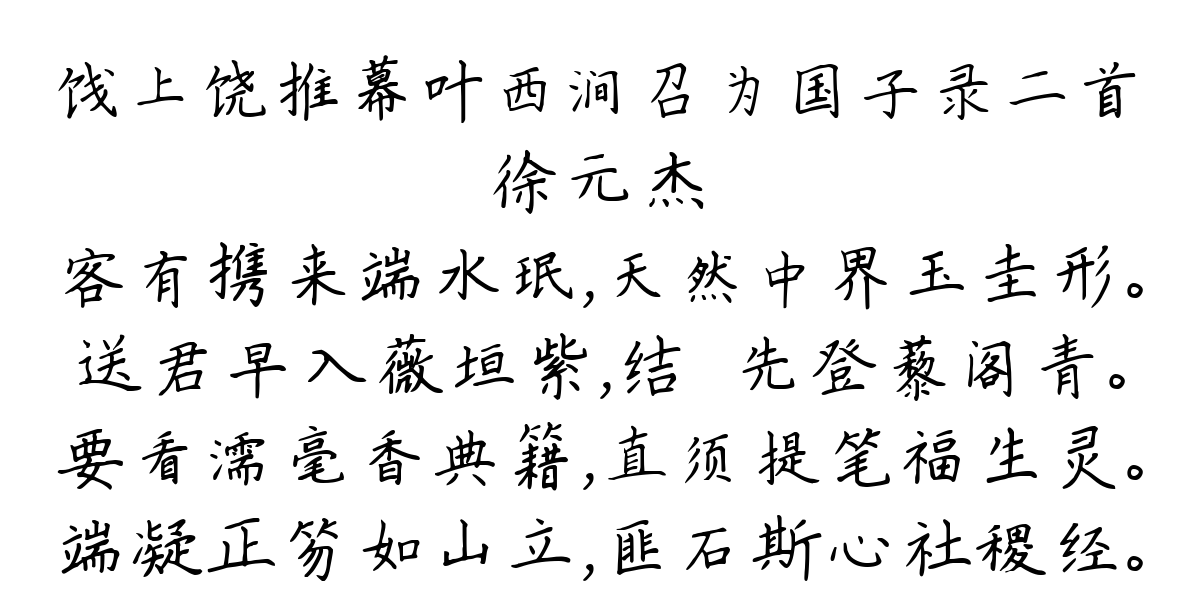 饯上饶推幕叶西涧召为国子录二首
徐元杰
客有携来端水珉,天然中界玉圭形。
送君早入薇垣紫,结 先登藜阁青。
要看濡毫香典籍,直须提笔福生灵。
端凝正笏如山立,匪石斯心社稷经。